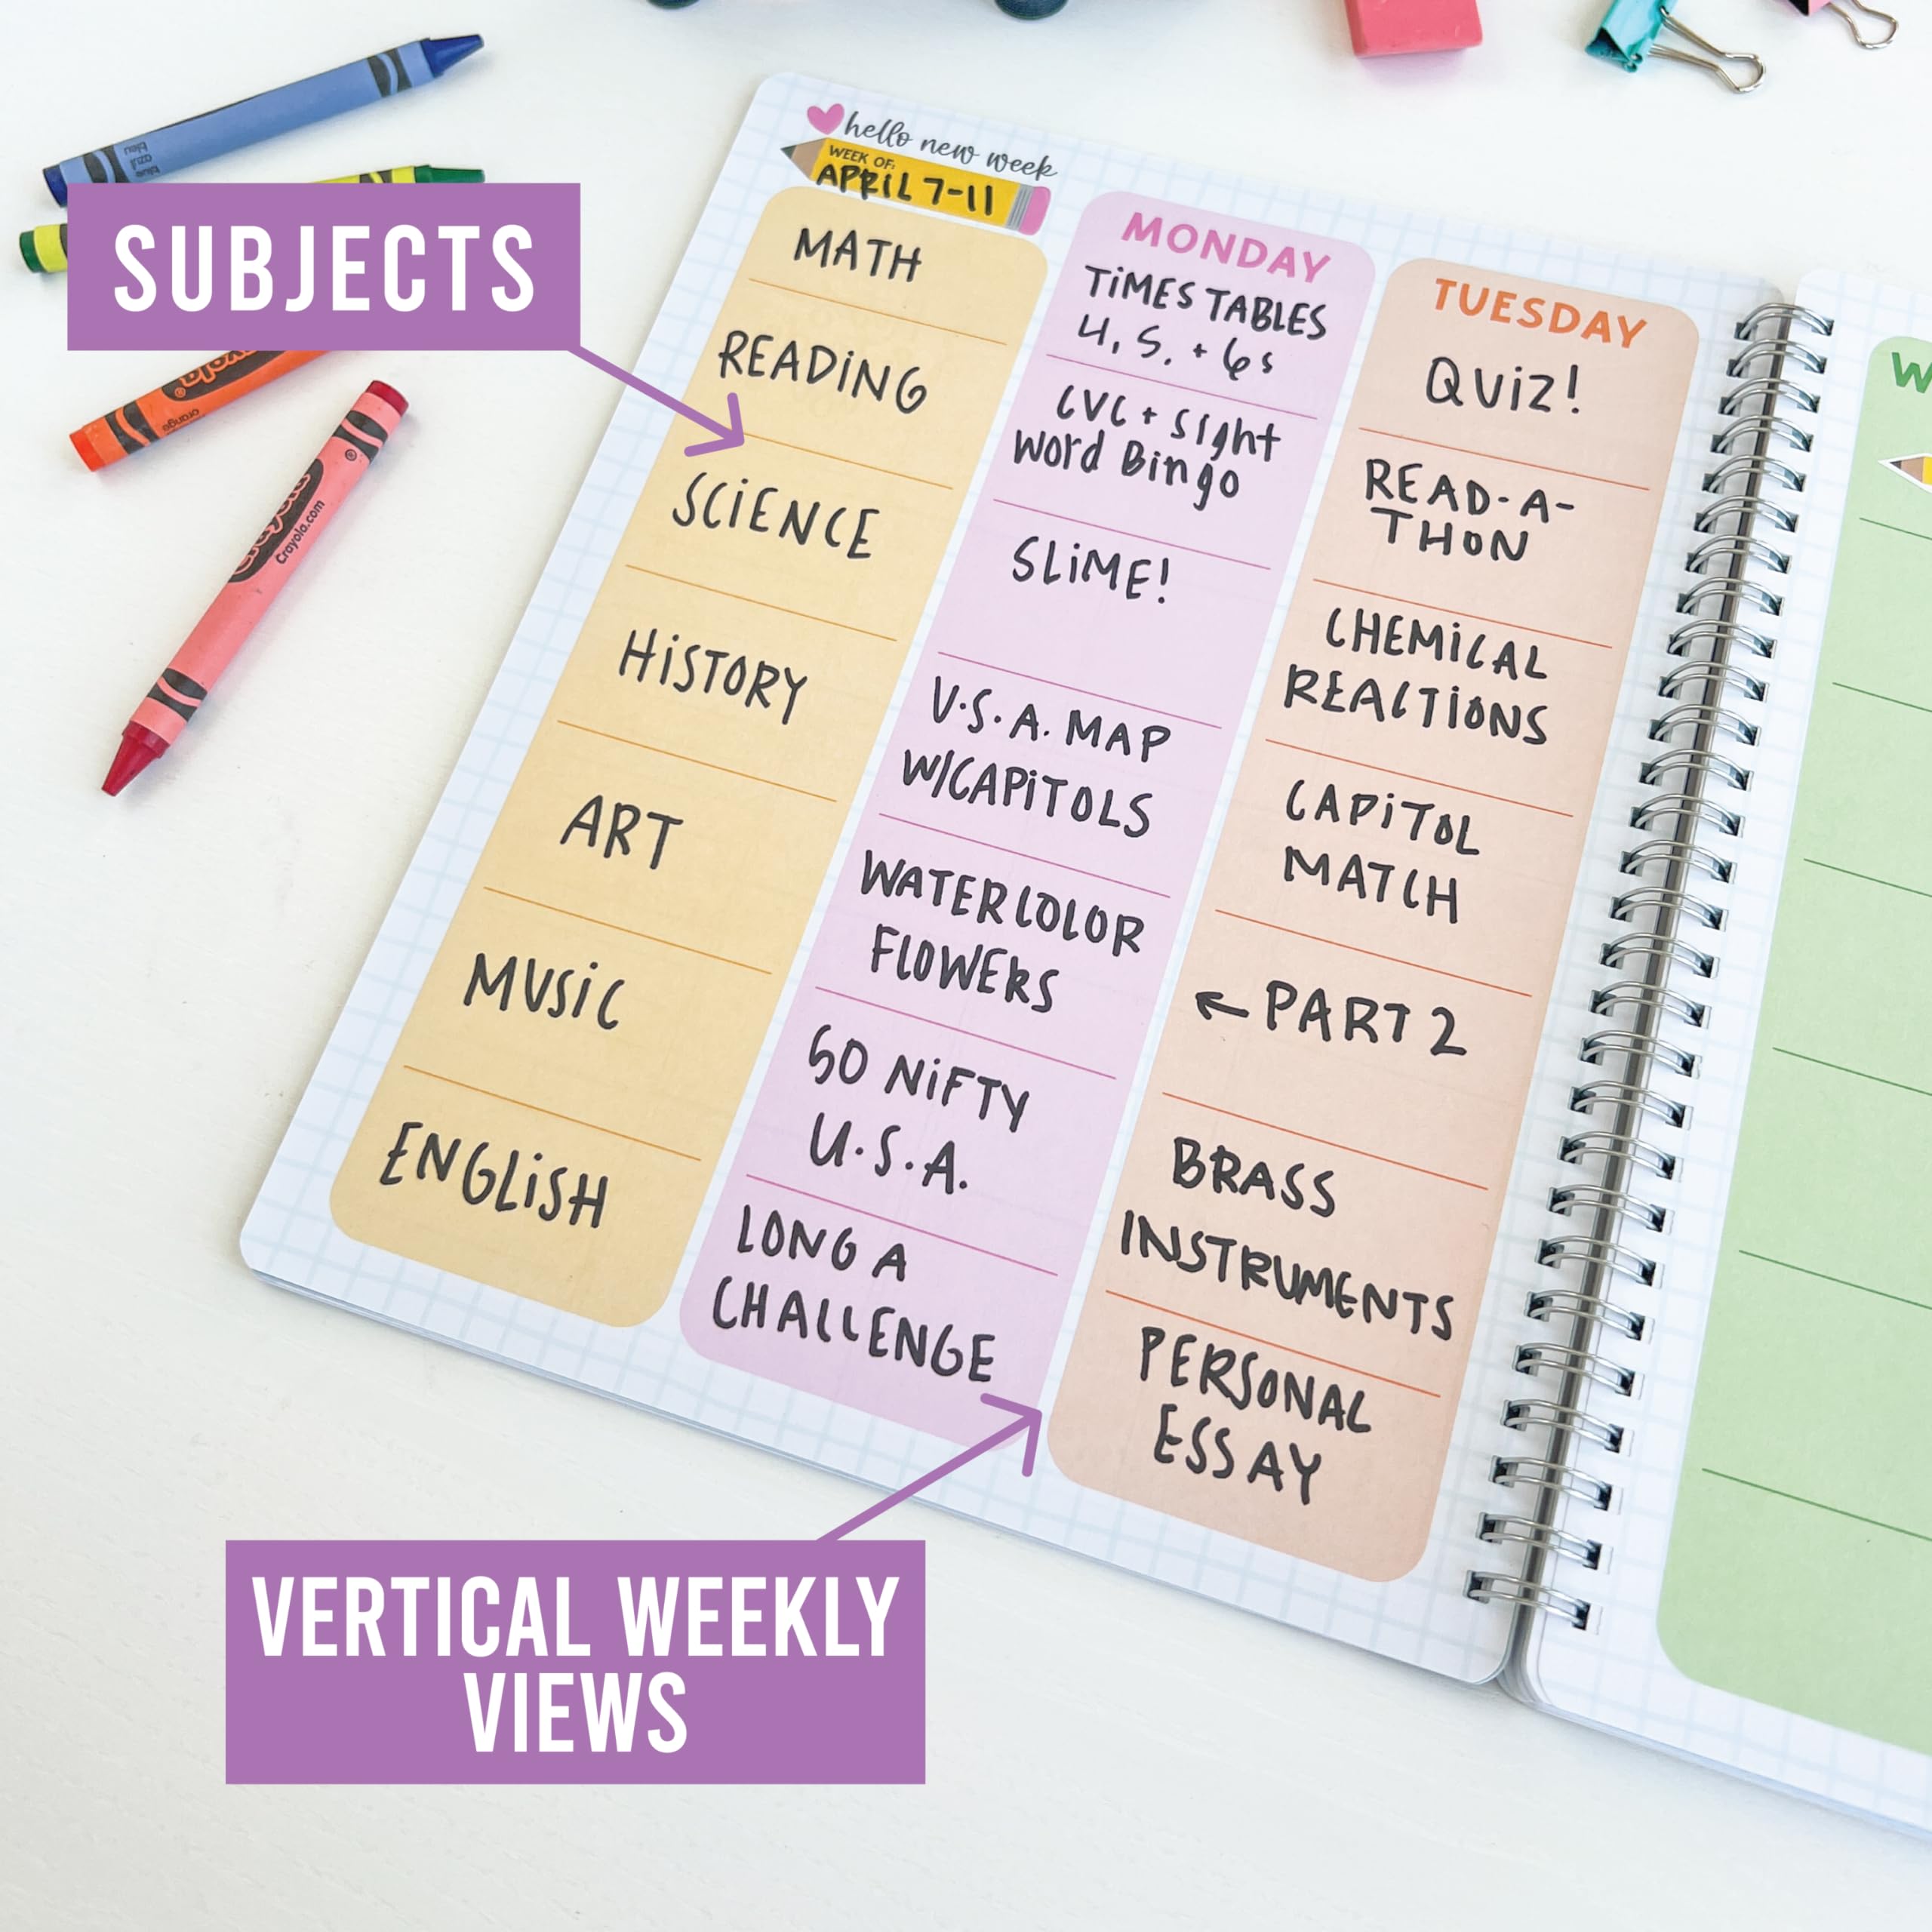 SUBJECTS
VERTICAL WEEKLY
VIEWS
hello new week
WEEK OF:
APRiL 7-11
MATH
READiNG
SCiENCE
HiSTORY
ART
MUSiC
ENGLiSH
MONDAY
TiMES TABLES
4, 5, + 6s
CVC + Sight
Word Bingo
SLiME!
U.S.A. MAP
W/CAPiTOLS
WATERCOLOR
FLOWERS
50 NiFTY
U.S.A.
LONG A
CHALLENGE
TUESDAY
QUiZ!
READ-A-
THON
CHEMiCAL
REACTiONS
CAPiTOL
MATCH
← PART 2
BRASS
INSTRUMENTS
PERSONAL
ESSAY
W
bleu
azul
blue
orange
Crayola
Crayola.com